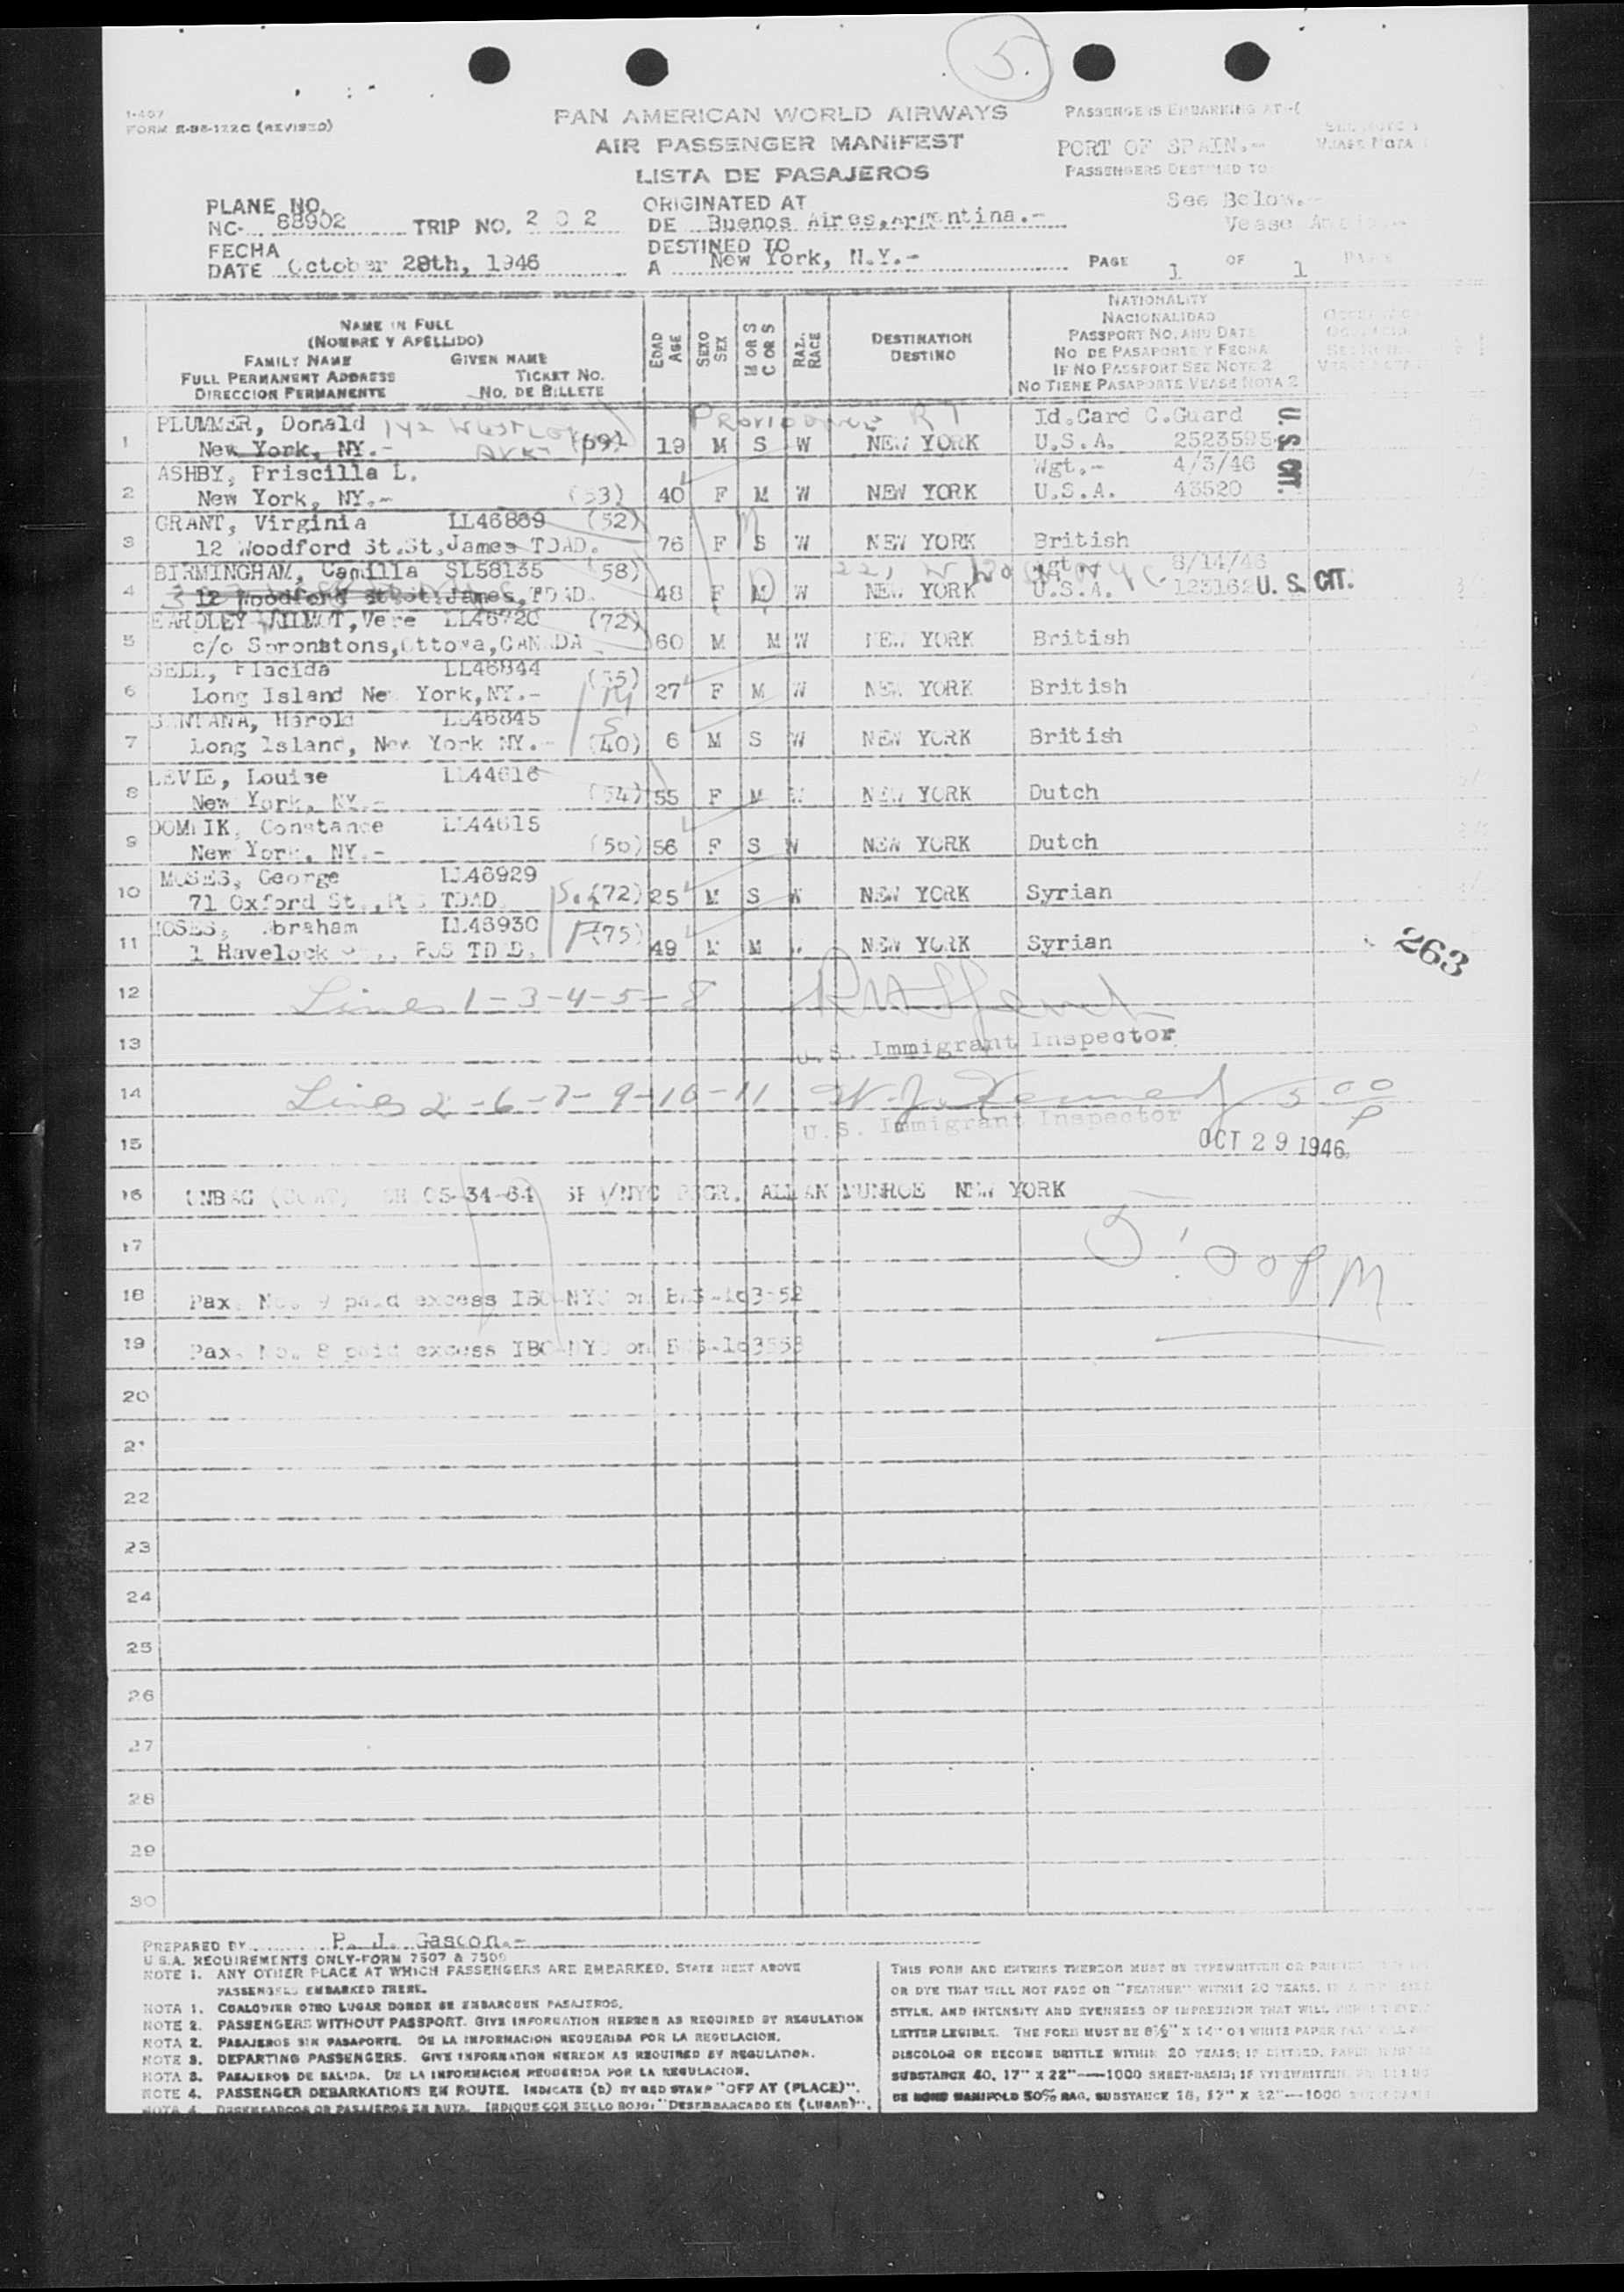 5.
1-407
FORM R-98-122C (REVISED)
PAN AMERICAN WORLD AIRWAYS
AIR PASSENGER MANIFEST
LISTA DE PASAJEROS
PASSENGERS EMBARKING AT
PORT OF SPAIN.-
PASSENGERS DESTINED TO
See Below.-
PLANE NO.
NC- 88902 TRIP NO. 202
FECHA
DATE October 28th, 1946
ORIGINATED AT
DE Buenos Aires, Argentina.-
DESTINED TO
A New York, N.Y.-
PAGE 1 OF 1
NAME IN FULL
(NOMBRE Y APELLIDO)
FAMILY NAME GIVEN NAME
FULL PERMANENT ADDRESS TICKET NO.
DIRECCION PERMANENTE NO. DE BILLETE
EDAD AGE
SEXO SEX
M OR S C OR S
RAZA RACE
DESTINATION
DESTINO
NATIONALITY
NACIONALIDAD
PASSPORT NO. AND DATE
NO DE PASAPORTE Y FECHA
IF NO PASSPORT SEE NOTE 2
NO TIENE PASAPORTE VEASE NOTA 2
PLUMMER, Donald 142 Providence RI Id.Card C.Guard
1 New York, NY.- 19 M S W NEW YORK U.S.A. 2523595 U.S. CIT.
ASHBY, Priscilla L. Wgt.- 4/3/46
2 New York, NY.- (53) 40 F M W NEW YORK U.S.A. 43520
GRANT, Virginia LL46869 (52)
3 12 Woodford St.St.James TDAD. 76 F S W NEW YORK British
BIRMINGHAM, Camilla SL58135 (58) 8/14/46
4 12 Woodford St.St.James, TDAD. 48 F M W NEW YORK U.S.A. 123162 U.S. CIT.
EARDLEY WILMOT, Vere LL46720 (72)
5 c/o Spronstons, Ottowa, CANADA 60 M M W NEW YORK British
SELL, Placida LL46844 (55)
6 Long Island New York, NY.- M 27 F M W NEW YORK British
SANTANA, Harold LL46845 S
7 Long Island, New York NY.- (40) 6 M S W NEW YORK British
LEVIE, Louise LL44616
8 New York, NY.- (54) 55 F M W NEW YORK Dutch
Constance LL44615
9 New York, NY.- (50) 56 F S W NEW YORK Dutch
MOSES, George LL46929
10 71 Oxford St., POS TDAD. (72) 25 M S W NEW YORK Syrian
MOSES, Abraham LL46930
11 1 Havelock POS TDAD. (75) 49 M M W NEW YORK Syrian
263
12 Lines 1-3-4-5-8
13 U.S. Immigrant Inspector
14 Lines 2-6-7-9-10-11 W. J. Kennedy 5 00 P
U.S. Immigrant Inspector
15 OCT 29 1946
16 PSGR. ALLAN MUNROE NEW YORK
17 5:00 PM
18 Pax. No. 9 paid excess IBC-NYC on
19 Pax. No. 8 paid excess IBC-NYC on
20
21
22
23
24
25
26
27
28
29
30
PREPARED BY P. J. Gascon.-
U.S.A. REQUIREMENTS ONLY-FORM 7507 & 7509
NOTE 1. ANY OTHER PLACE AT WHICH PASSENGERS ARE EMBARKED. STATE NEXT ABOVE
PASSENGERS EMBARKED THERE.
NOTA 1. CUALQUIER OTRO LUGAR DONDE SE EMBARQUEN PASAJEROS.
NOTE 2. PASSENGERS WITHOUT PASSPORT. GIVE INFORMATION HEREON AS REQUIRED BY REGULATION
NOTA 2. PASAJEROS SIN PASAPORTE. DE LA INFORMACION REQUERIDA POR LA REGULACION.
NOTE 3. DEPARTING PASSENGERS. GIVE INFORMATION HEREON AS REQUIRED BY REGULATION.
NOTA 3. PASAJEROS DE SALIDA. DE LA INFORMACION REQUERIDA POR LA REGULACION.
NOTE 4. PASSENGER DEBARKATIONS EN ROUTE. INDICATE (D) BY RED STAMP "OFF AT (PLACE)".
NOTA 4. DESEMBARCOS DE PASAJEROS EN RUTA. INDIQUE CON SELLO ROJO: "DESEMBARCADO EN (LUGAR)".
THIS FORM AND ENTRIES THEREON MUST BE TYPEWRITTEN OR
OR DYE THAT WILL NOT FADE OR "FEATHER" WITHIN 20 YEARS.
STYLE, AND INTENSITY AND EVENNESS OF IMPRESSION THAT WILL
LETTER LEGIBLE. THE FORM MUST BE 8½" X 14" ON WHITE PAPER
DISCOLOR OR BECOME BRITTLE WITHIN 20 YEARS; IF
SUBSTANCE 40, 17" X 22"—1000 SHEET-BASIS; IF TYPEWRITTEN,
OR BOND MANIFOLD 50% RAG, SUBSTANCE 16, 17" X 22"—1000